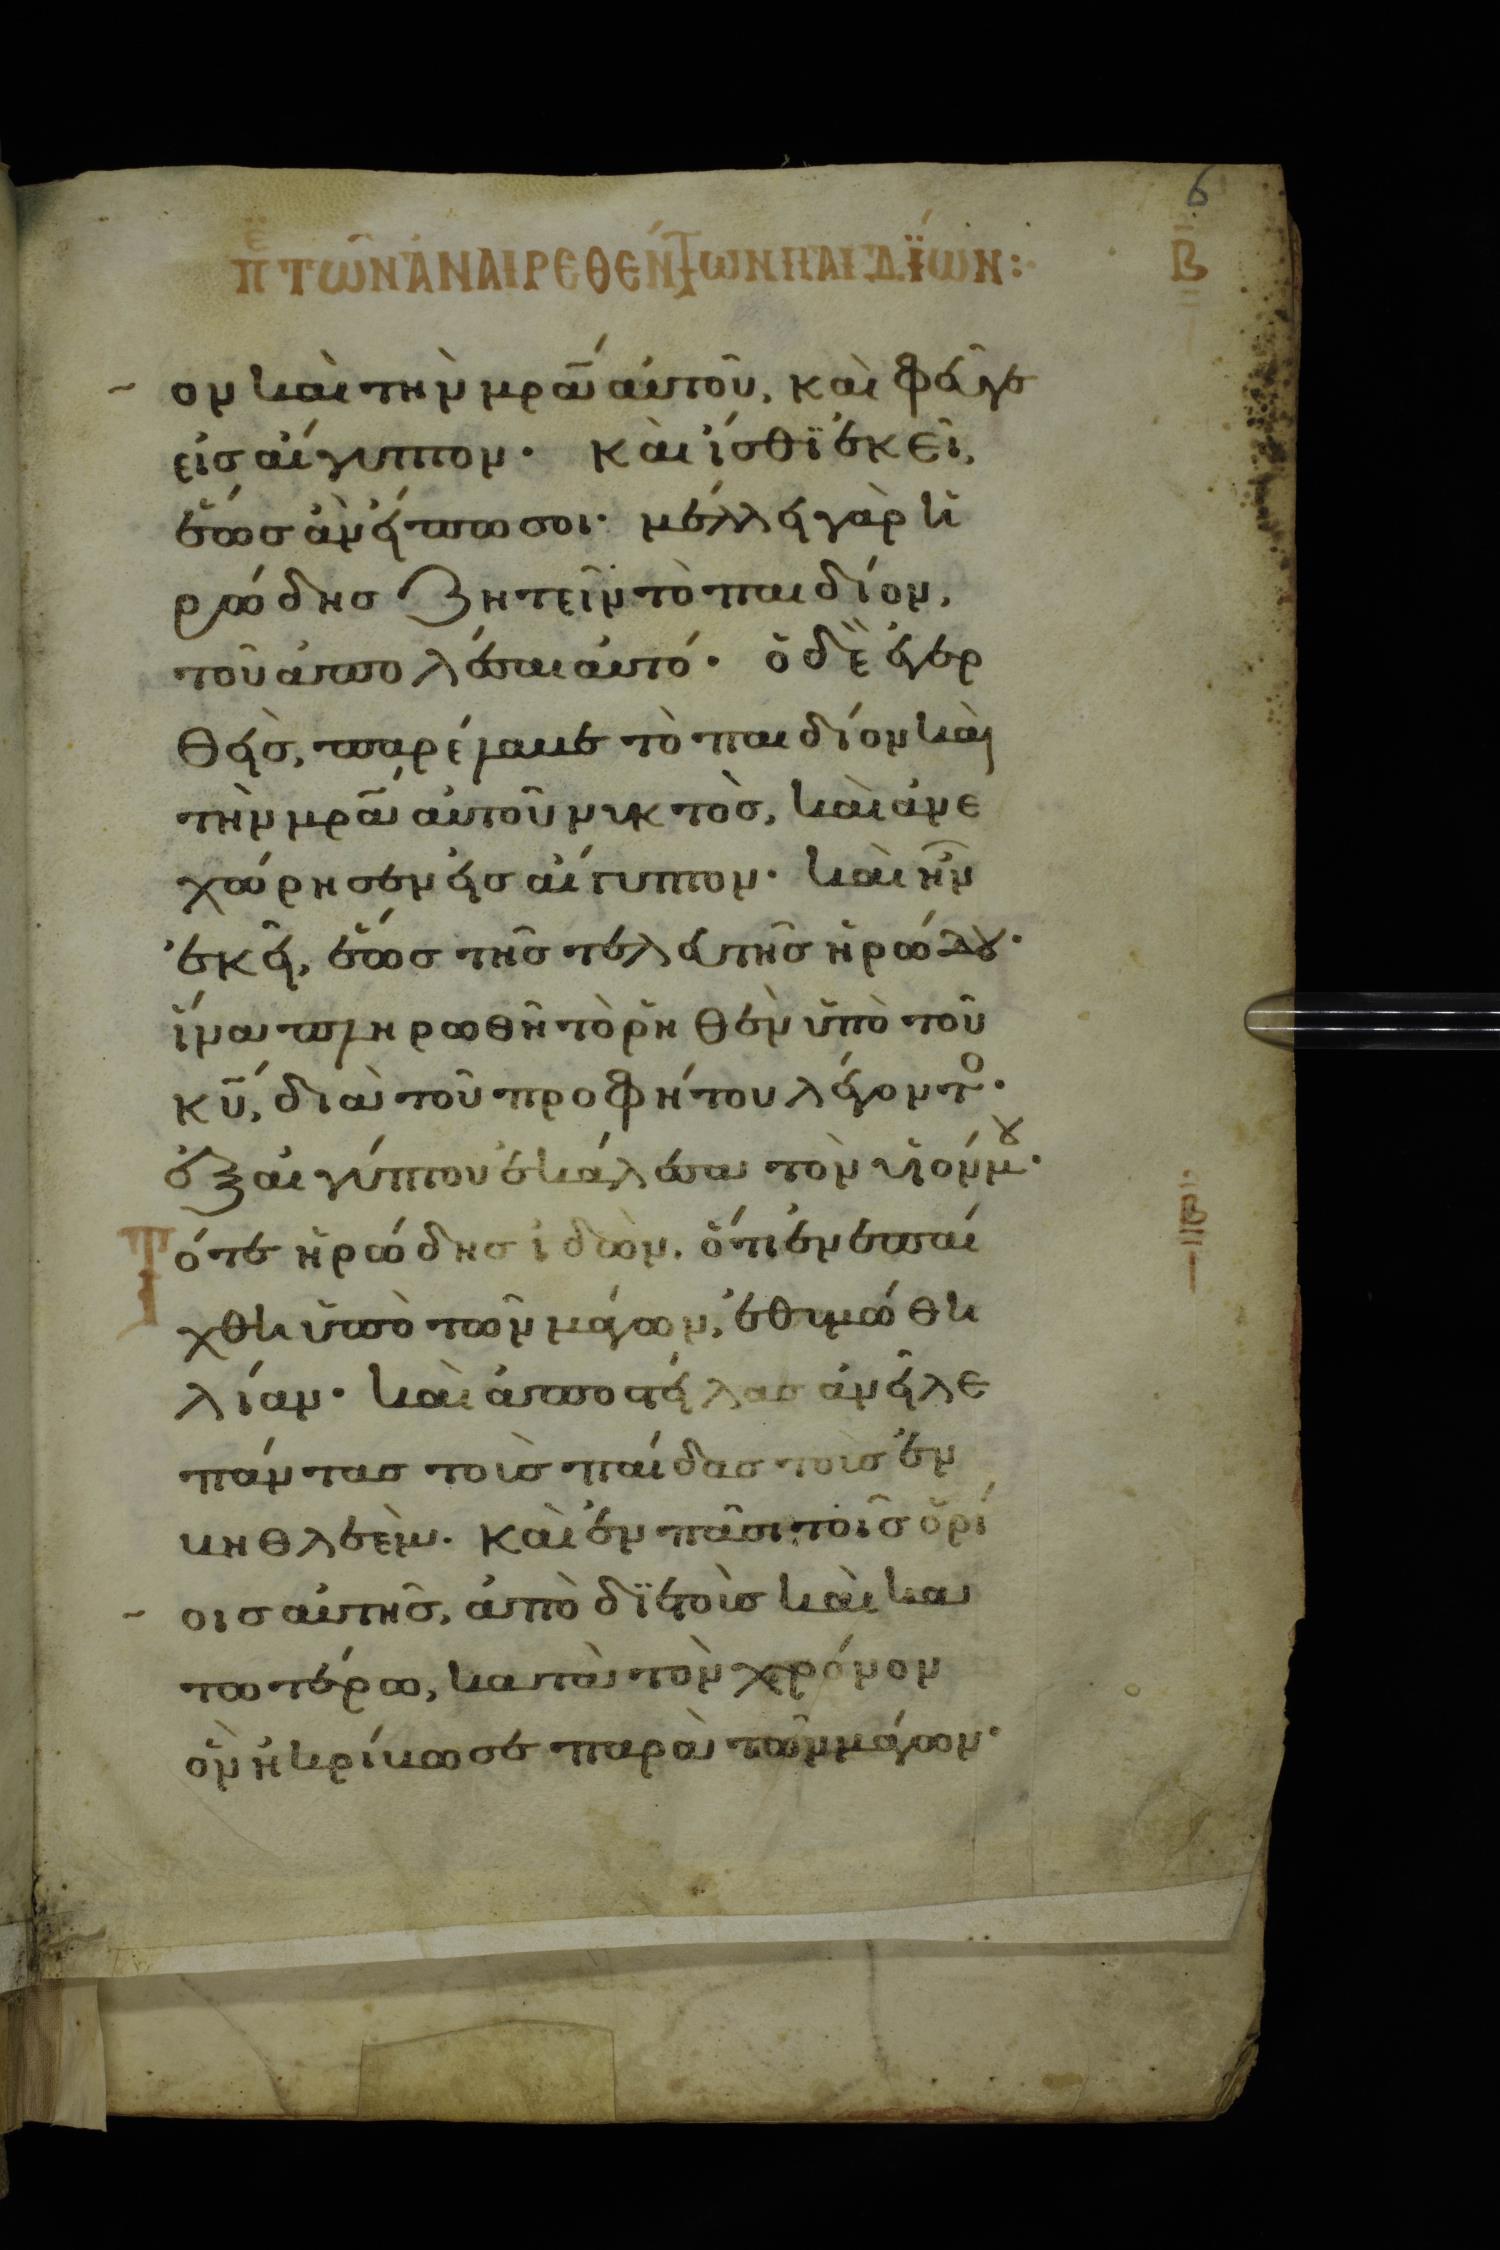 6
πε τῶν ἀναιρεθέντων παιδΐων:
Β
ον καὶ την μρᾱ αὐτοῦ, καὶ φεῦγε
εἰσ αἴγυπτον· καὶ ἴσθϊ ἐκεῖ,
ἕωσ ἂν εἴπω σοι· μέλλει γὰρ ἡ
ρώδησ ζητεῖν τὸ παιδίον,
τοῦ ἀπολέσαι αὐτό· ὁ δὲ ἐγερ
θεὶσ, παρέλαβε τὸ παιδίον καὶ
τὴν μρᾱ αὐτοῦ νυκτὸσ, καὶ ἀνε
χώρησεν εἰσ αἴγυπτον· καὶ ἦν
ἐκεῖ, ἕωσ τῆσ τελευτῆσ ἡρώδου·
ἵνα πληρωθῆ τὸ ῥηθὲν ὑπὸ τοῦ
κῡ, διὰ τοῦ προφήτου λέγοντο·
ἐξ αἰγύπτου ἐκάλεσα τὸν υἱόν μου·
Τότε ἡρώδησ ἰδὼν, ὅτι ἐνεπαί
χθη ὑπὸ τῶν μάγων, ἐθυμώθη
λίαν· καὶ ἀποστείλασ ἀνεῖλε
πάντασ τοὺσ παίδασ τοὺσ ἐν
βηθλεὲμ· καὶ ἐν πᾶσι τοῖσ ὁρί
οισ αὐτῆσ, ἀπὸ δϊετοὺσ καὶ κα
τωτέρω, κατὰ τὸν χρόνον
ὃν ἠκρίβωσε παρὰ τῶν μάγων·